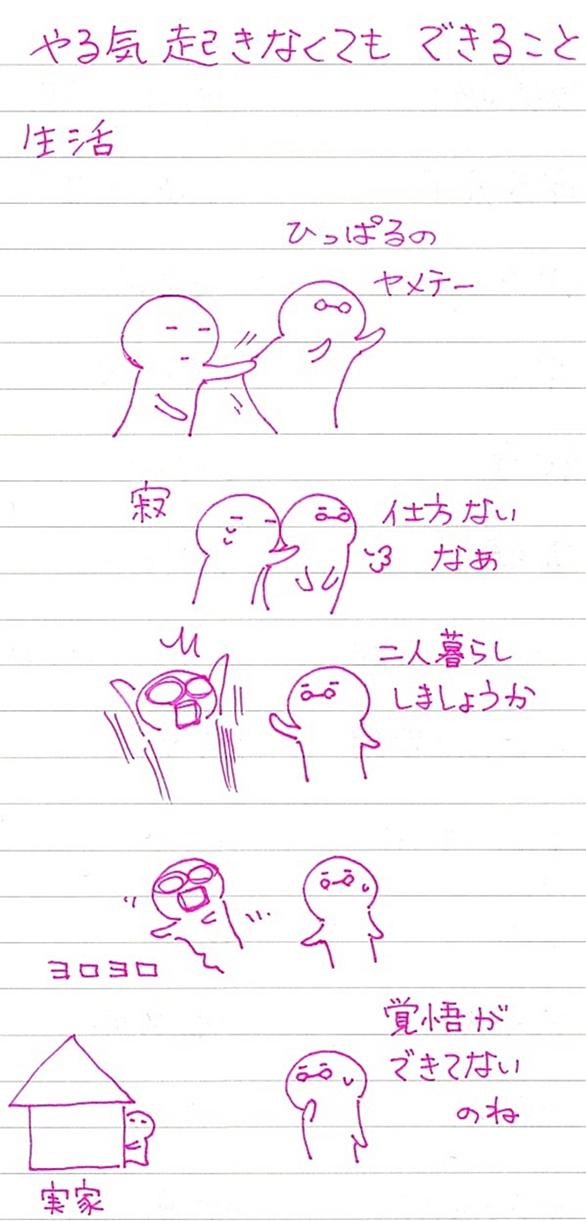 やる気 起きなくても できること
生活
ひっぱるの
ヤメテー
寂
仕方ない
なぁ
二人暮らし
しましょうか
ヨロヨロ
覚悟が
できてない
のね
実家